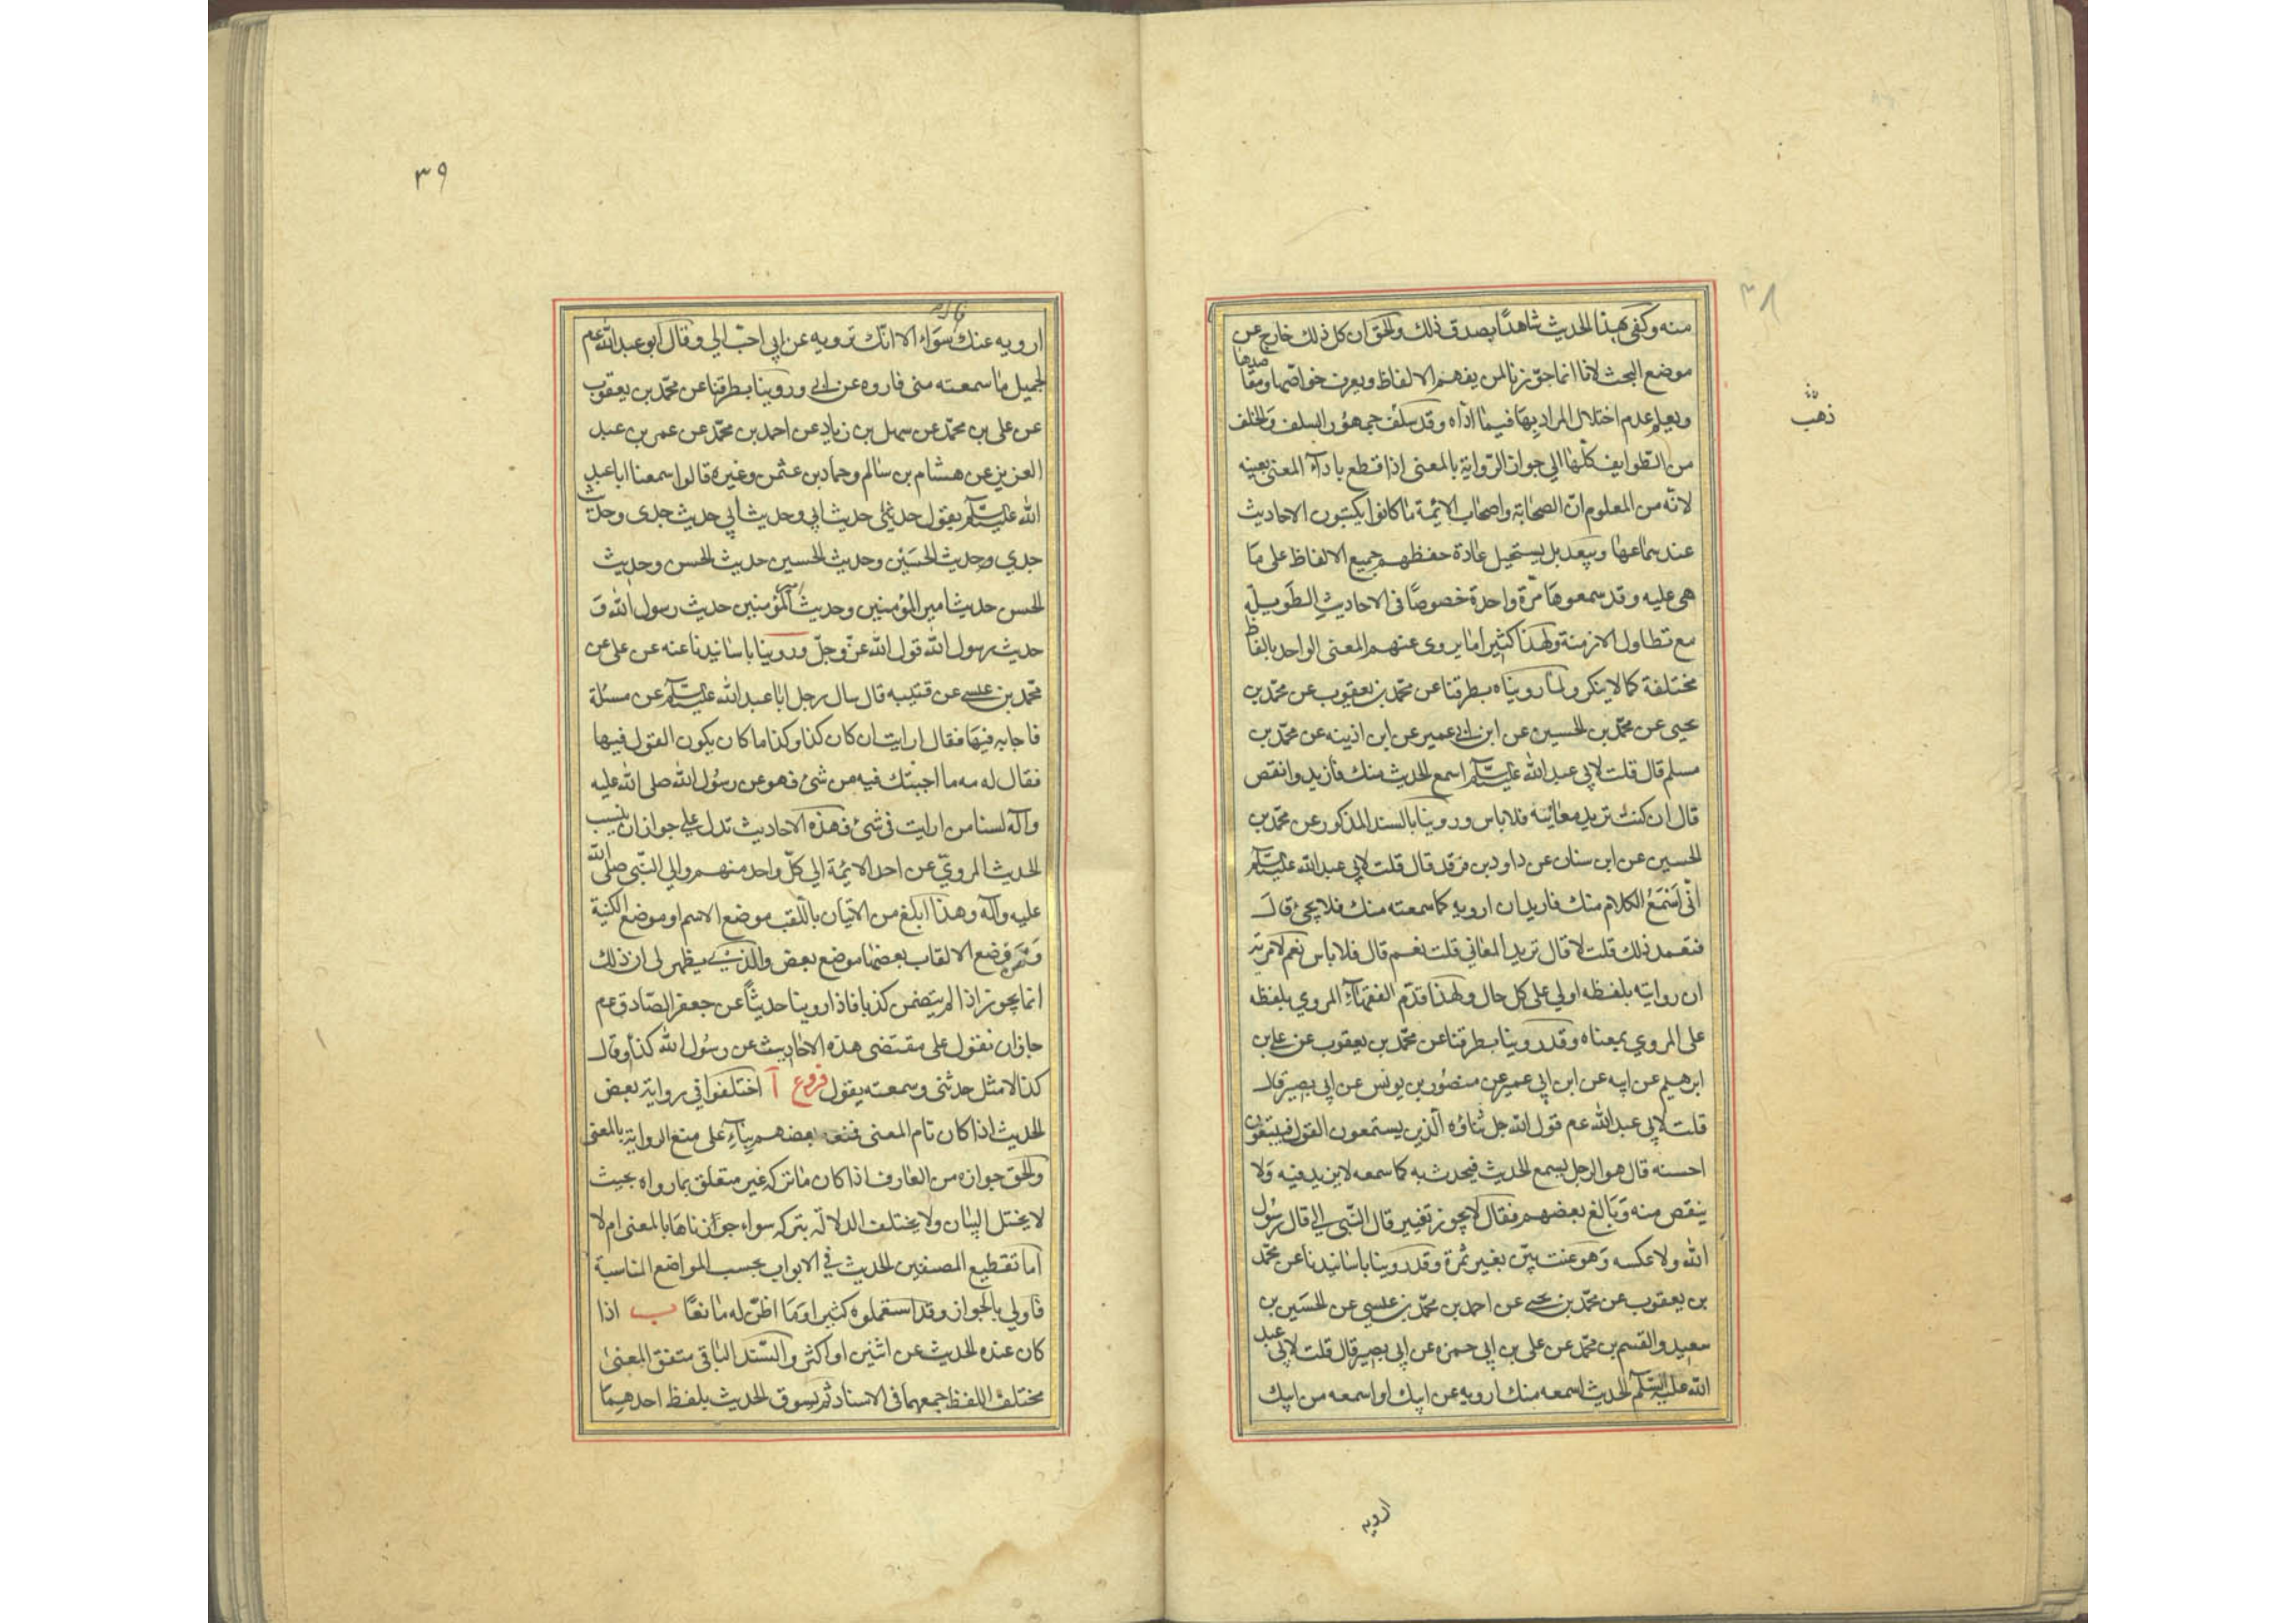 ٣٨
منه وكفى بهذا الحديث شاهدًا بصدق ذلك والحق ان كل ذلك خارج عن
موضع البحث لانا انما جوّزنا لمن يفهم الالفاظ ويعرف خواصّها ومقاصدها
ويعلم عدم اختلال المراد بها فيما ادّاه وقد سلف جمهور السلف والخلف
ذهب
من الطوايف كلّها الي جواز الرّواية بالمعنى اذا قطع باداء المعنى بعينه
لانّه من المعلوم انّ الصّحابة واصحاب الائمّة ما كانوا يكتبون الاحاديث
عند سماعها ويبعد بل يستحيل عادة حفظهم جميع الالفاظ على ما
هى عليه وقد سمعوها مرّة واحدة خصوصًا فى الاحاديث الطويلة
مع تطاول الازمنة ولهذا كثيرا ما يروى عنهم المعنى الواحد بالفاظ
مختلفة كما لا ينكر ولما رويناه بطرقنا عن محمّد بن يعقوب عن محمّد بن
يحيى عن محمّد بن الحسين عن ابن ابي عمير عن ابن اذينه عن محمّد بن
مسلم قال قلت لابى عبد الله عليه السّلم اسمع الحديث منك فازيد وانقص
قال ان كنت تريد معانيه فلا باس وروينا بالسند المذكور عن محمّد بن
الحسين عن ابن سنان عن داود بن فرقد قال قلت لابى عبد الله عليه السّلم
انّى اسَمَعُ الكلام منك فاريد ان ارويه كما سمعته منك فلا يجئ قال
فتعمد ذلك قلت لا قال تريد المعاني قلت نعم قال فلا باس نعم لا مرية
ان روايته بلفظه اولي على كل حال ولهذا قدّم الفقهاء المروي بلفظه
على المروي بمعناه وقد روينا بطرقنا عن محمّد بن يعقوب عن على بن
ابرهيم عن ابيه عن ابن ابي عمير عن منصور بن يونس عن ابى بصير قال
قلت لابى عبد الله عم قول الله جل ثناؤه الّذين يستمعون القول فيتبعون
احسنه قال هو الرجل يسمع الحديث فيحدث به كما سمعه لا يزيد فيه ولا
ينقص منه وبالغ بعضهم فقال لا يجوز تغيير قال النّبى الي قال رسول
الله ولا عكسه وهو عنت بيّن بغير ثمرة وقد روينا باسانيدنا عن محمّد
بن يعقوب عن محمّد بن يحيى عن احمد بن محمّد بن عيسي عن الحسَين بن
سعيد والقسم بن محمّد عن على بن ابى حمزه عن ابى بصير قال قلت لابى عبد
الله عليه السّلم الحديث اسمعه منك ارويه عن ابيك او اسمعه من ابيك
ارويه
٣٩
ارويه عنك سَواء الا انّك ترويه عن ابى احبّ الي وقال ابو عبد الله عم
لجميل ما سمعته منى فاروه عن ابي وروينا بطرقنا عن محمّد بن يعقوب
عن على بن محمّد عن سهل بن زياد عن احمد بن محمّد عن عمر بن عبد
العزيز عن هشام بن سالم وحماد بن عثمن وغيره قالوا سمعنا ابا عبد
الله عليه السّلم يقول حديثى حديث ابى وحديث ابى حديث جدى وحديث
جدي حديث الحسَين وحديث الحسين حديث الحسن وحديث
الحسن حديث امير المؤمنين وحديث امير المؤمنين حديث رسول الله و
حديث رسول الله قول الله عزّ وجلّ وروينا باسانيدنا عنه عن على عن
محمّد بن عيسى عن قتيبه قال سال رجل ابا عبد الله عليه السّلم عن مسئلة
فاجابه فيها فقال ارايت ان كان كذا وكذا ما كان يكون القول فيها
فقال له مه ما اجبتك فيه من شئ فهو عن رسُول الله صلى الله عليه
وآله لسنا من ارايت فى شئ فهذه الاحاديث تدل على جواز ان ينسب
الحديث المروىّ عن احد الايمّة الي كلّ واحد منهم والي النّبى صلّى الله
عليه وآله وهذا ابلغ من الاتيان باللّقب موضع الاسم او موضع الكنية
وضع الالقاب بعضها موضع بعض والّذي يظهر لى ان ذلك
انما يجوز اذا لم يتضمن كذبا فاذا روينا حديثاً عن جعفر الصّادق عم
جاز ان نقول على مقتضى هذه الاحاديث عن رسُول الله كذا وقال
كذا لا مثل حدثنى وسمعته يقول فروع آ اختلفوا في رواية بعض
الحديث اذا كان تام المعنى فمنعه بعضهم بناء على منع الرواية بالمعنى
والحق جوازه من العارف اذا كان ما تركه غير متعلق بما رواه بحيث
لا يختل البيان ولا يختلف الدلالة بتركه سواء جوّزناها بالمعنى ام لا
اما تقطيع المصنفين الحديث في الابواب بحسب المواضع المناسبة
فاولي بالجواز وقد استعملوه كثيرا وَما اظنّ له مانعًا ب اذا
كان عنده الحديث عن اثنين او اكثر والسّند الباقى متفق المعنى
مختلف اللفظ جمعهما فى الاسناد ثم يسوق الحديث بلفظ احدهما